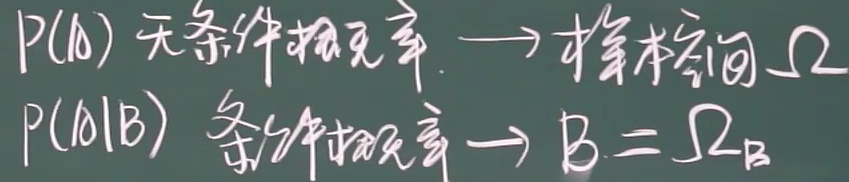 P(A) 无条件概率. → 样本空间 Ω
P(A|B) 条件概率 → B = Ω_B